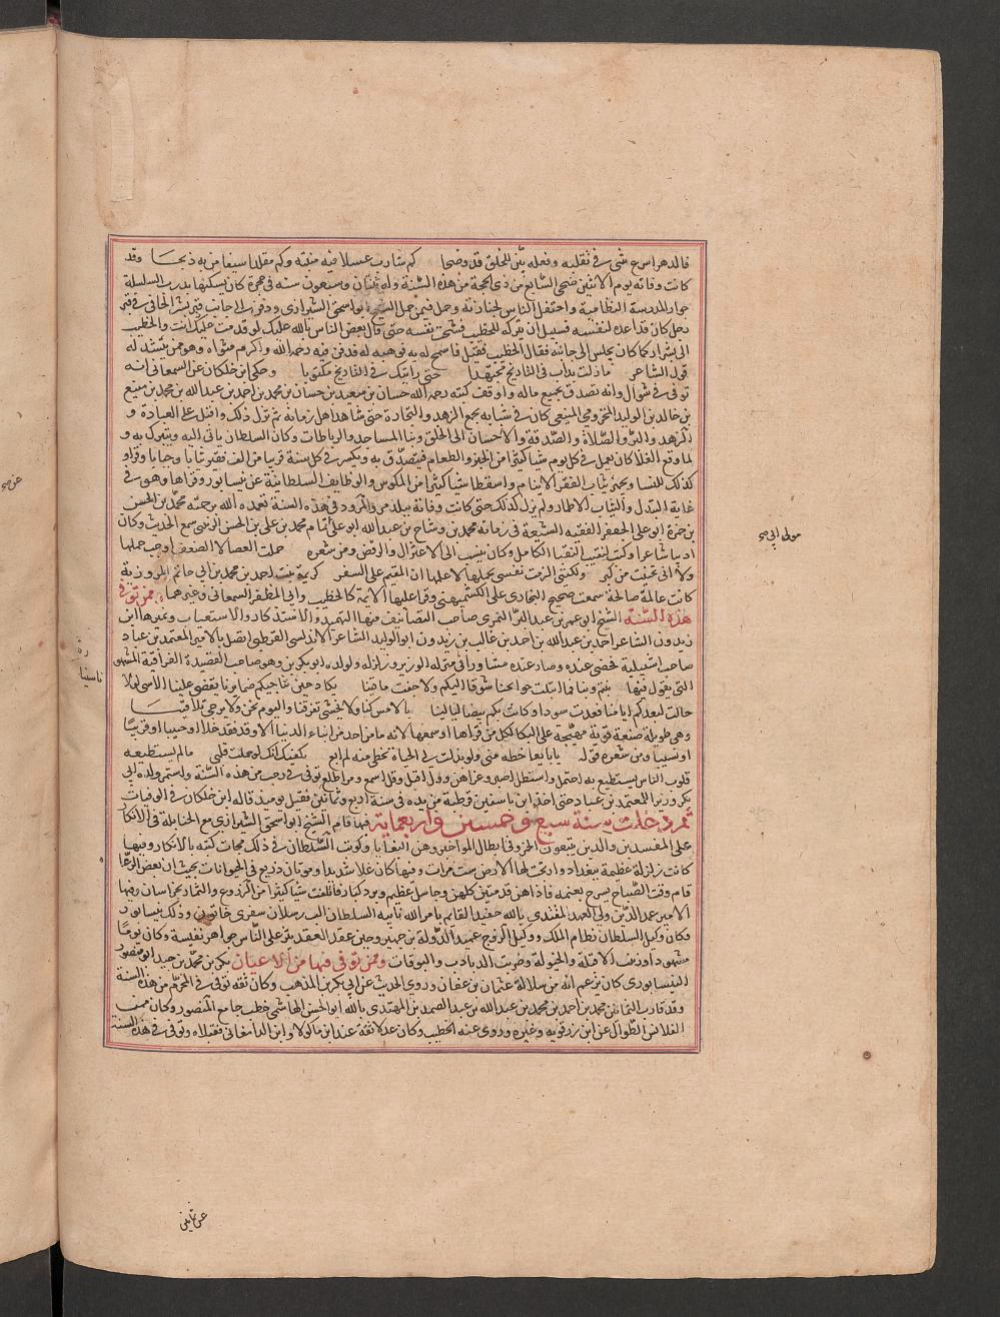 فالدهر اسرع شي في تقلبه وفعله بين للخلق قد وضحا كم شارب عسلا فيه منيته وكم مقلد سيفا من به ذبحا وقد
كانت وفاته يوم الاثنين ضحى السابع من ذي الحجة من هذه السنة وله ثنتان وسبعون سنة في حجرة كان يسكنها بدرب السلسلة
جوار المدرسة النظامية واحتفل الناس لجنازته وحمل فيمن حمل الشيخ ابو اسحق الشيرازي ودفن الى جانب قبر بشر الحافي في قبر
رجل كان قد اعده لنفسه فسيل ان يتركه للخطيب فشح به نفسه حتى قال بعض الناس بالله عليك لو قدمت عليك انت والخطيب
الى بشر ايكما كان يجلس الى جانبه فقال الخطيب فقيل فاسمح له به فوهبه له فدفن فيه رحمه الله واكرم مثواه وهو ممن ينشد له
قول الشاعر ما زلت تداب في التاريخ مجتهدا حتى رايتك في التاريخ مكتوبا وحكى ابن خلكان عن السمعاني انه
توفي في شوال وانه تصدق بجميع ماله واوقف كتبه رحمه الله حسان بن سعيد بن حسان بن محمد بن احمد بن عبد الله بن محمد بن منيع
بن خالد بن الوليد المخزومي المنيعي كان في شبابه يجمع الزهد والتجارة حتى شاهد اهل زمانه ثم ترك ذلك واقبل على العبادة و
الزهد والبر والصلاة والصدقة والاحسان الى الخلق وبنا المساجد والرباطات وكان السلطان ياتي اليه ويتبرك به و
لما وقع الغلا كان يعمل في كل يوم شيا كثيرا من الخبز والطعام فيتصدق به ويكسو في كل سنة قريبا من الف فقير ثيابا وجبابا وفراو
كذلك للنسا ويجهز بنات الفقر الايتام واسقط شيا كثيرا من المكوس والوظايف السلطانية عن نيسابور وقراها وهو في
غاية التبذل والثياب الاطمار ولم يزل كذلك حتى كانت وفاته ببلد مرو الروذ في هذه السنة تغمده الله برحمته محمد بن الحسن
بن حمزة ابو على الجعفري الفقيه الشيعة في زمانه محمد بن وشاح بن عبد الله ابو على تمام محمد بن على بن الحسن الزينبي سمع الحديث وكان
اديبا شاعرا وكتب لنقيب النقبا الكامل وكان ينسب الى الاعتزال والرفض ومن شعره حملت العصا لا الضعف اوجب حملها
ولا انى تحنيت من كبر ولكنني الزمت نفسي بحملها لاعلمها ان المقيم على السفر كريمة بنت احمد بن محمد بن ابي حاتم المروزية
كانت عالمة صالحة سمعت صحيح البخاري على الكشميهني وقرا عليها الايمة كالخطيب وابي المظفر السمعاني وغيرهما وممن توفي
هذه السنة الشيخ ابو عمر بن عبد البر النمري صاحب التصانيف منها التمهيد والاستذكار والاستيعاب وغيرها ابن
زيدون الشاعر احمد بن عبد الله بن احمد بن غالب بن زيدون ابو الوليد الشاعر الاندلسي القرطبي اتصل بالامير المعتمد بن عباد
صاحب اشبيلية فحضي عنده وصار عنده مشاورا في منزله الوزير ووزر له ولولده ابو بكر بن وهو صاحب القصيدة الفراقية المشهورة
التي يقول فيها بنتم وبنا فما ابتلت جوانحنا شوقا اليكم ولا جفت ماقينا يكاد حين تناجيكم ضمايرنا يقضي علينا الاسى لولا
حالت لبعدكم ايامنا فغدت سودا وكانت بكم بيضا ليالينا بالامس كنا ولا يخشى تفرقنا واليوم نحن ولا يرجى تلاقينا
وهي طويلة صنعة قوية مهيجة على البكا لكل من قراها او سمعها لانه ما من احد من ابناء الدنيا الا وقد فقد خلا او حبيبا او قريبا
او نسيبا ومن شعره قوله يا بايعا حظه مني ولو بذلت لي الحياة بحظي منه لم ابع يكفيك انك لو حملت قلبي مالم يستطيعه
قلوب الناس يستطيع ته احتمل واستطل اصبر وعز اهن وول اقبل وقل اسمع ومر اطع توفي في رجب من هذه السنة واستمر ولده ابي
بكر وزيرا للمعتمد بن عباد حتى اخذ ابن تاشفين قرطبة من يده في سنة اربع وثمانين فقيل يوميذ قاله ابن خلكان في الوفيات
ثم دخلت سنة سبع وخمسين واربعماية فيها قام الشيخ ابو اسحق الشيرازي مع الحنابلة في الانكار
على المفسدين والذين يبيعون الخمر وفي ابطال المواخير وهن البغايا وكوتب السلطان في ذلك فجات كتبه بالانكار وفيها
كانت زلزلة عظيمة ببغداد وارتجت لها الارض ست مرات وفيها كان غلا شديد وموتان ذريع في الحيوانات بحيث ان بعض الرعا
قام وقت الصباح ليسرح بغنمه فاذاهن قد متن كلهن وجا سيل عظيم وبرد كبار فاتلفت شيا كثيرا من الزروع والثمار بخراسان وفيها
الامير عدة الدين ولي العهد المقتدي بالله حفيد القايم بامر الله تابنه السلطان الب رسلان سفري خاتون وذلك بنيسابور
وكان وكيل السلطان نظام الملك ووكيل الزوج عميد الدولة بن جهير وحين عقد العقد نثر على الناس جواهر نفيسة وكان يوما
مشهودا وزينت الافيلة والخيولة وضربت الدبادب والبوقات وممن توفي فيها من الاعيان بكر بن محمد بن حيد ابو منصور
النيسابوري كان يزعم انه من سلالة عثمان بن عفان وروى الحديث عن ابي بكر بن المذهب وكان ثقه توفي في المحرم من هذه السنة
وقد قارب الثمانين محمد بن احمد بن محمد بن عبد الله بن عبد الصمد بن المهتدي بالله ابو الحسن الهاشمي خطب جامع المنصور وكان ممن
القلانس الطوال عن ابن زرقويه وغيره وروى عنه الخطيب وكان عدلا ثقة عند ابن ماكولا وابن الدامغاني فقبلاه وتوفي في هذه السنة
مولى ابي